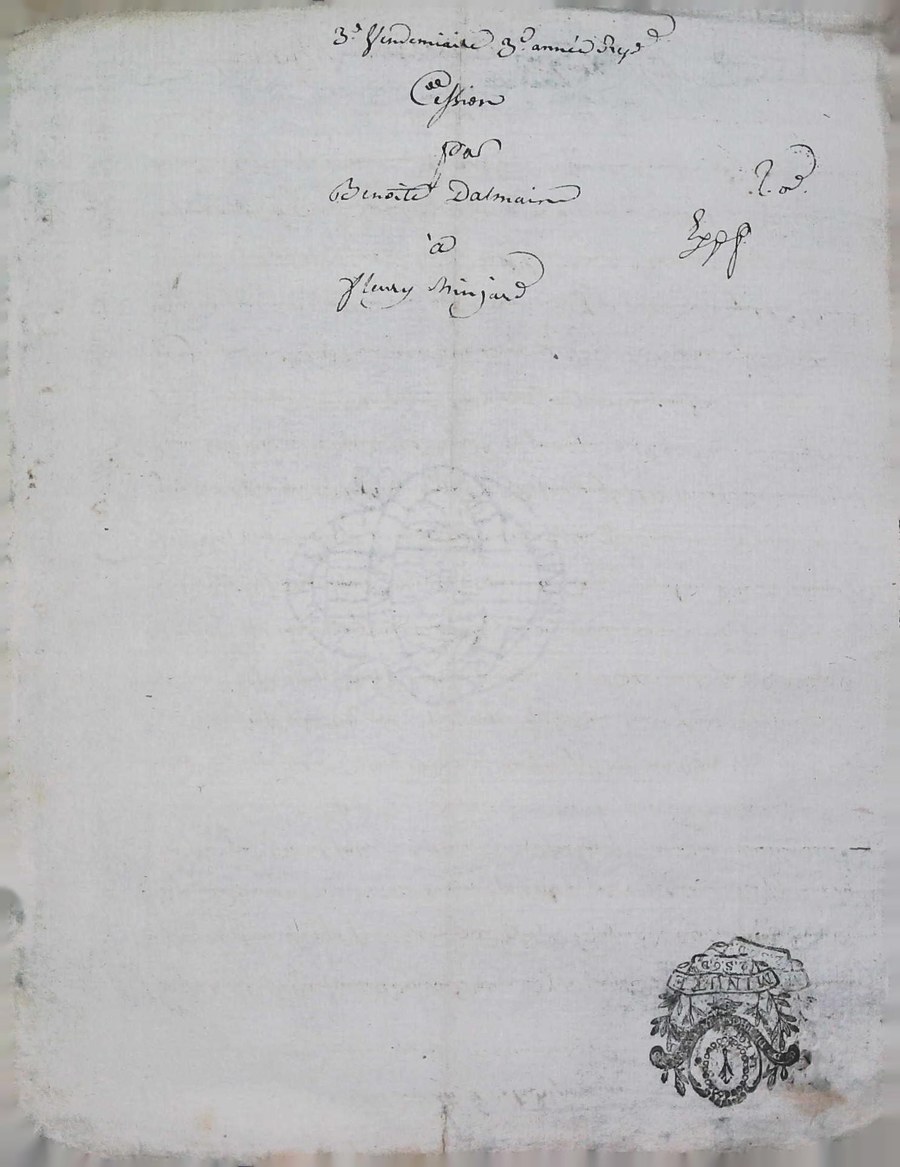 3e Vendemiaire 3e année Repe
Cession
par
Benoite Dalmain
à
fleury Minjard
R. od.
Exp
MINUTE